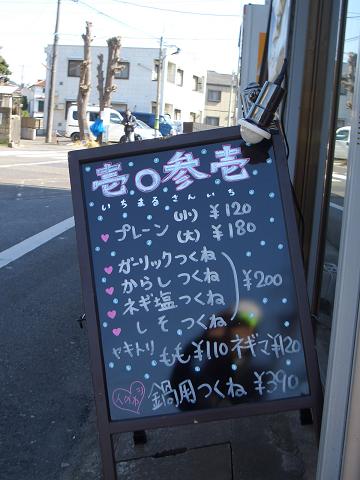 壱〇参壱
いちまるさんいち
プレーン (小) ¥120
(大) ¥180
ガーリックつくね
からしつくね
ネギ塩つくね
しそつくね
¥200
ヤキトリ もも¥110 ネギマ¥120
鍋用つくね ¥390